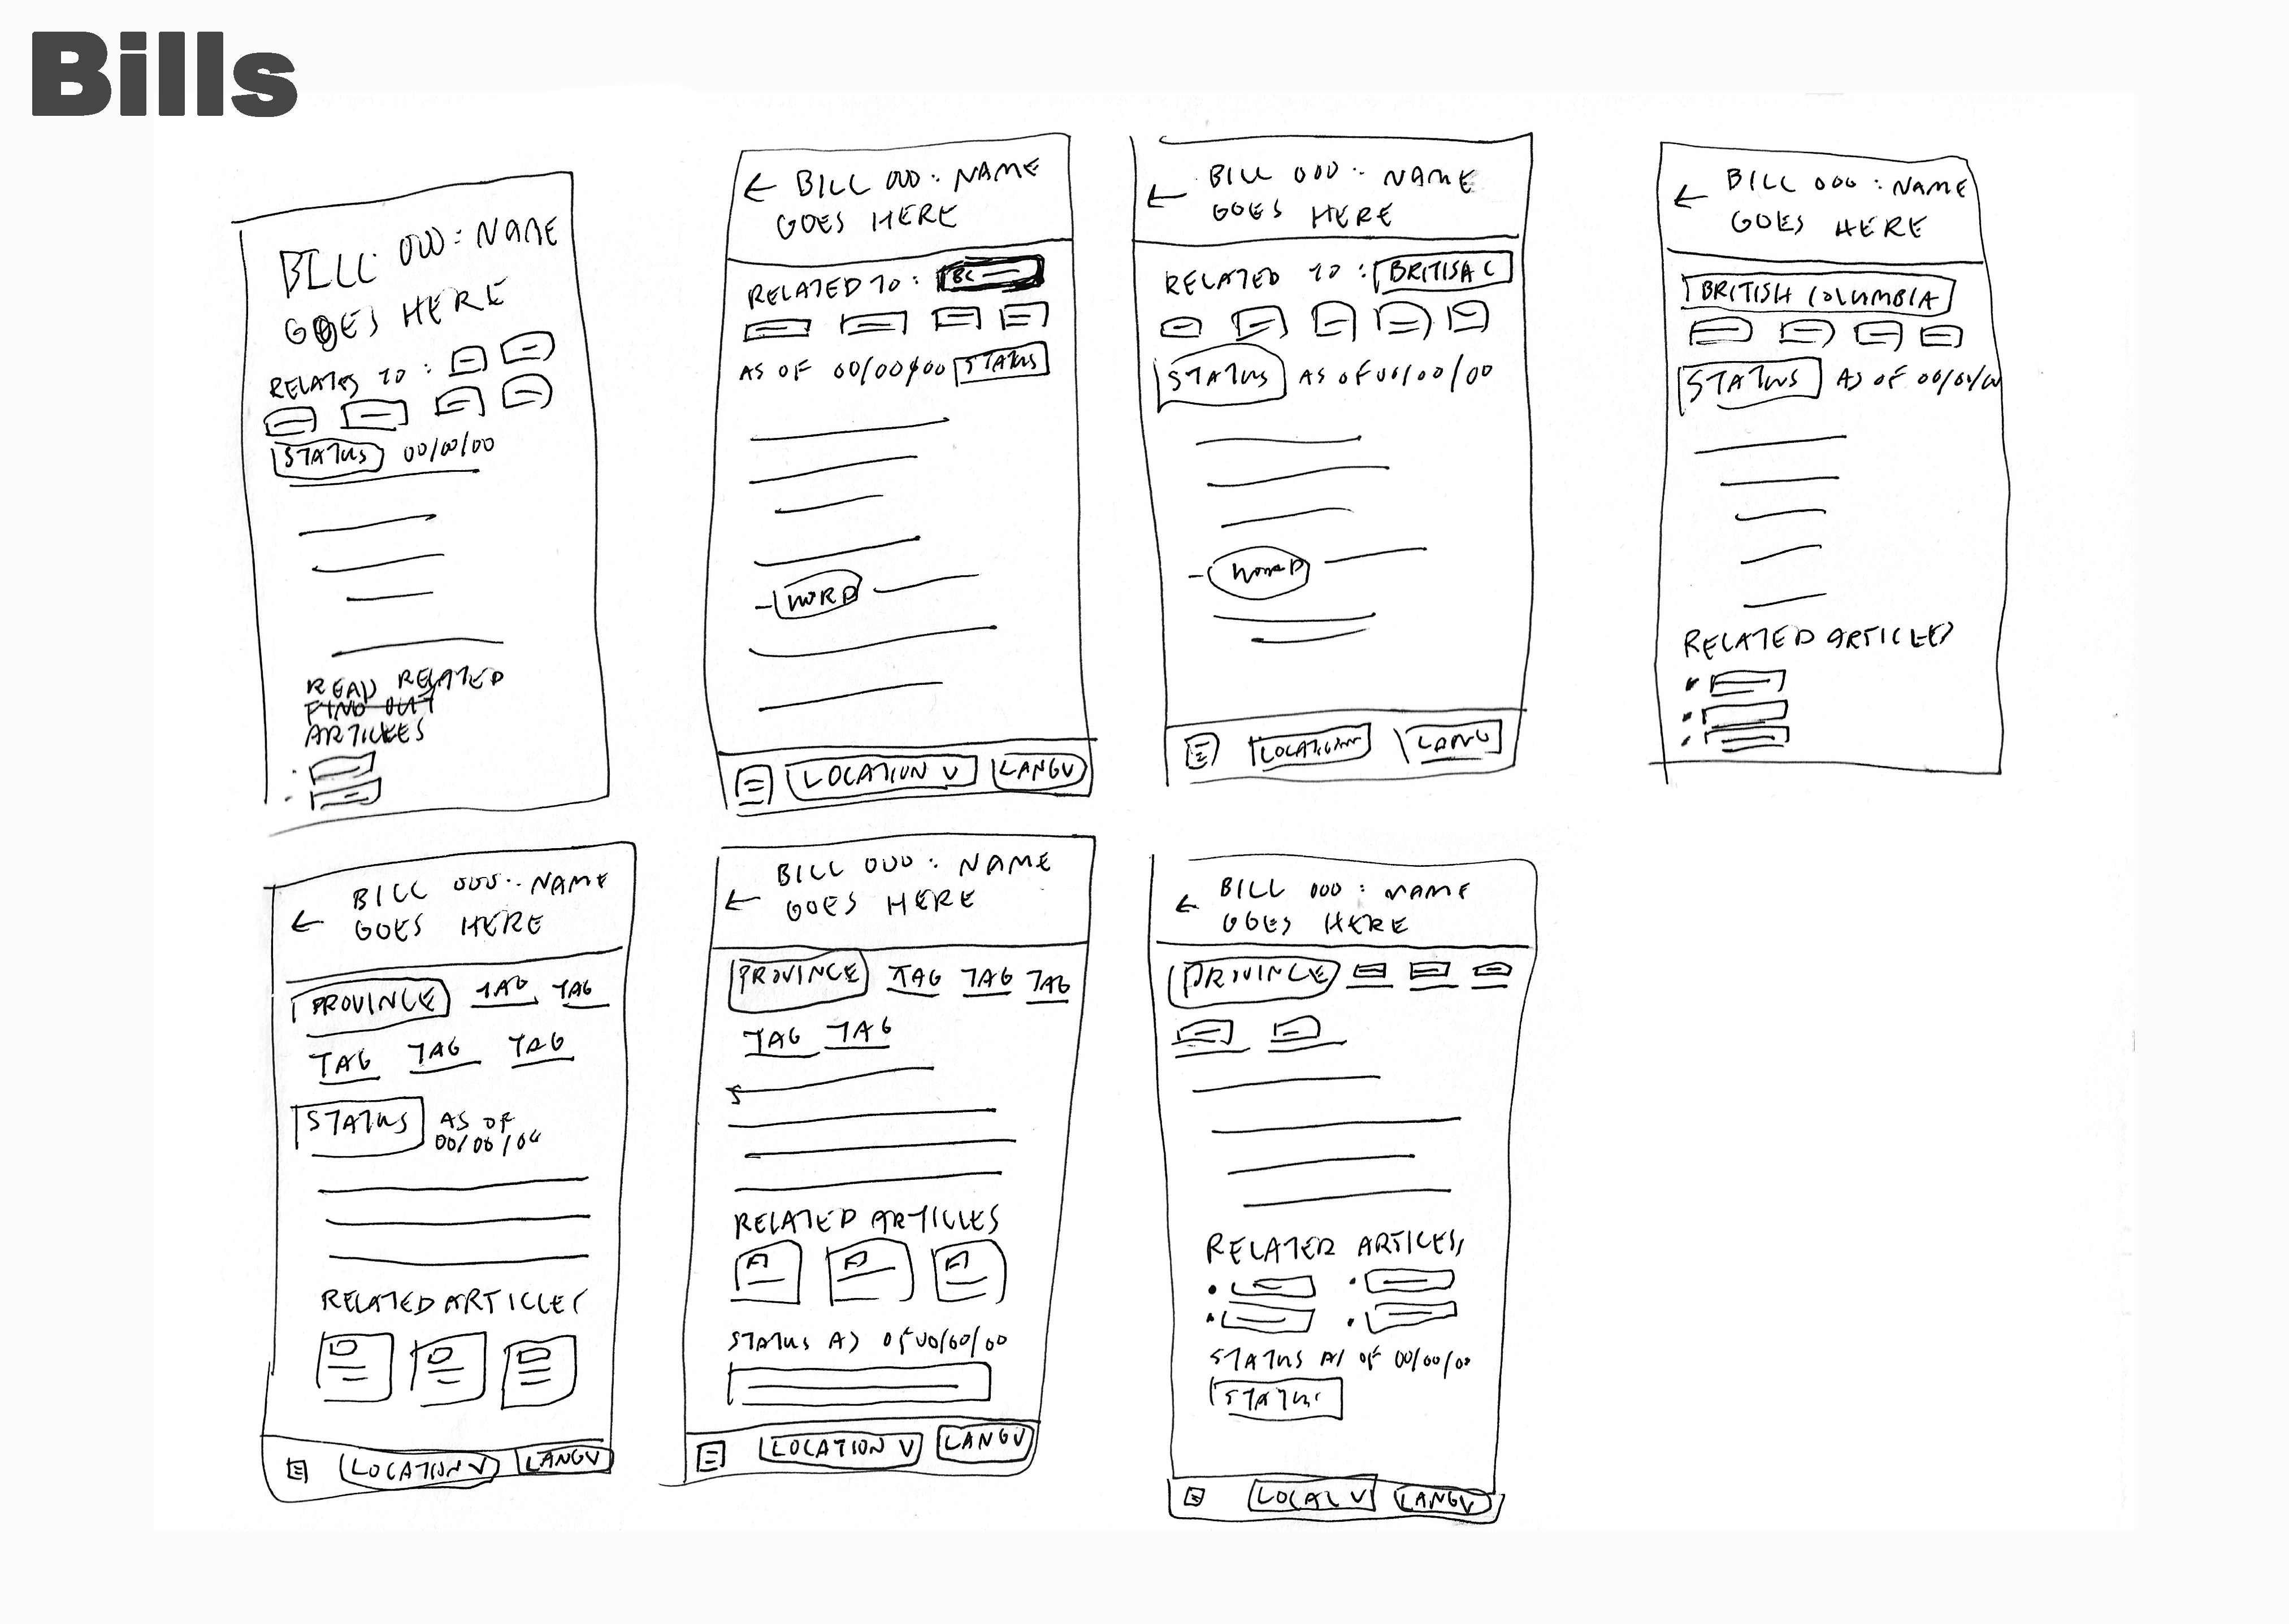 Bills
BILL 000: NAME
GOES HERE
RELATES TO:
STATUS 00/00/00
READ RELATED
FIND OUT
ARTICLES
← BILL 000: NAME
GOES HERE
RELATED TO: BC
AS OF 00/00/00 STATUS
WORD
LOCATION V LANG V
← BILL 000: NAME
GOES HERE
RELATED TO: BRITISH C
STATUS AS OF 00/00/00
WORD
LOCATION LANG
← BILL 000: NAME
GOES HERE
BRITISH COLUMBIA
STATUS AS OF 00/00/00
RELATED ARTICLES
← BILL 000: NAME
GOES HERE
PROVINCE TAG TAG
TAG TAG TAG
STATUS AS OF
00/00/00
RELATED ARTICLES
LOCATION V LANG V
← BILL 000: NAME
GOES HERE
PROVINCE TAG TAG TAG
TAG TAG
RELATED ARTICLES
STATUS AS OF 00/00/00
LOCATION V LANG V
← BILL 000: NAME
GOES HERE
PROVINCE
RELATED ARTICLES
STATUS AS OF 00/00/00
STATUS
LOCAL V LANG V